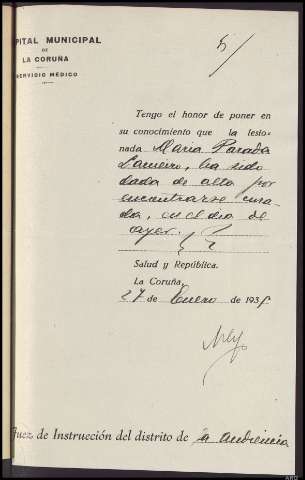 PITAL MUNICIPAL
DE
LA CORUÑA
SERVICIO MÉDICO
5/
Tengo el honor de poner en
su conocimiento que la lesio-
nada Maria Parada
Lameiro, ha sido
dada de alta por
encontrarse cura-
da, en el dia de
ayer.
Salud y República.
La Coruña,
27 de Enero de 1935.
Juez de Instrucción del distrito de la Audiencia